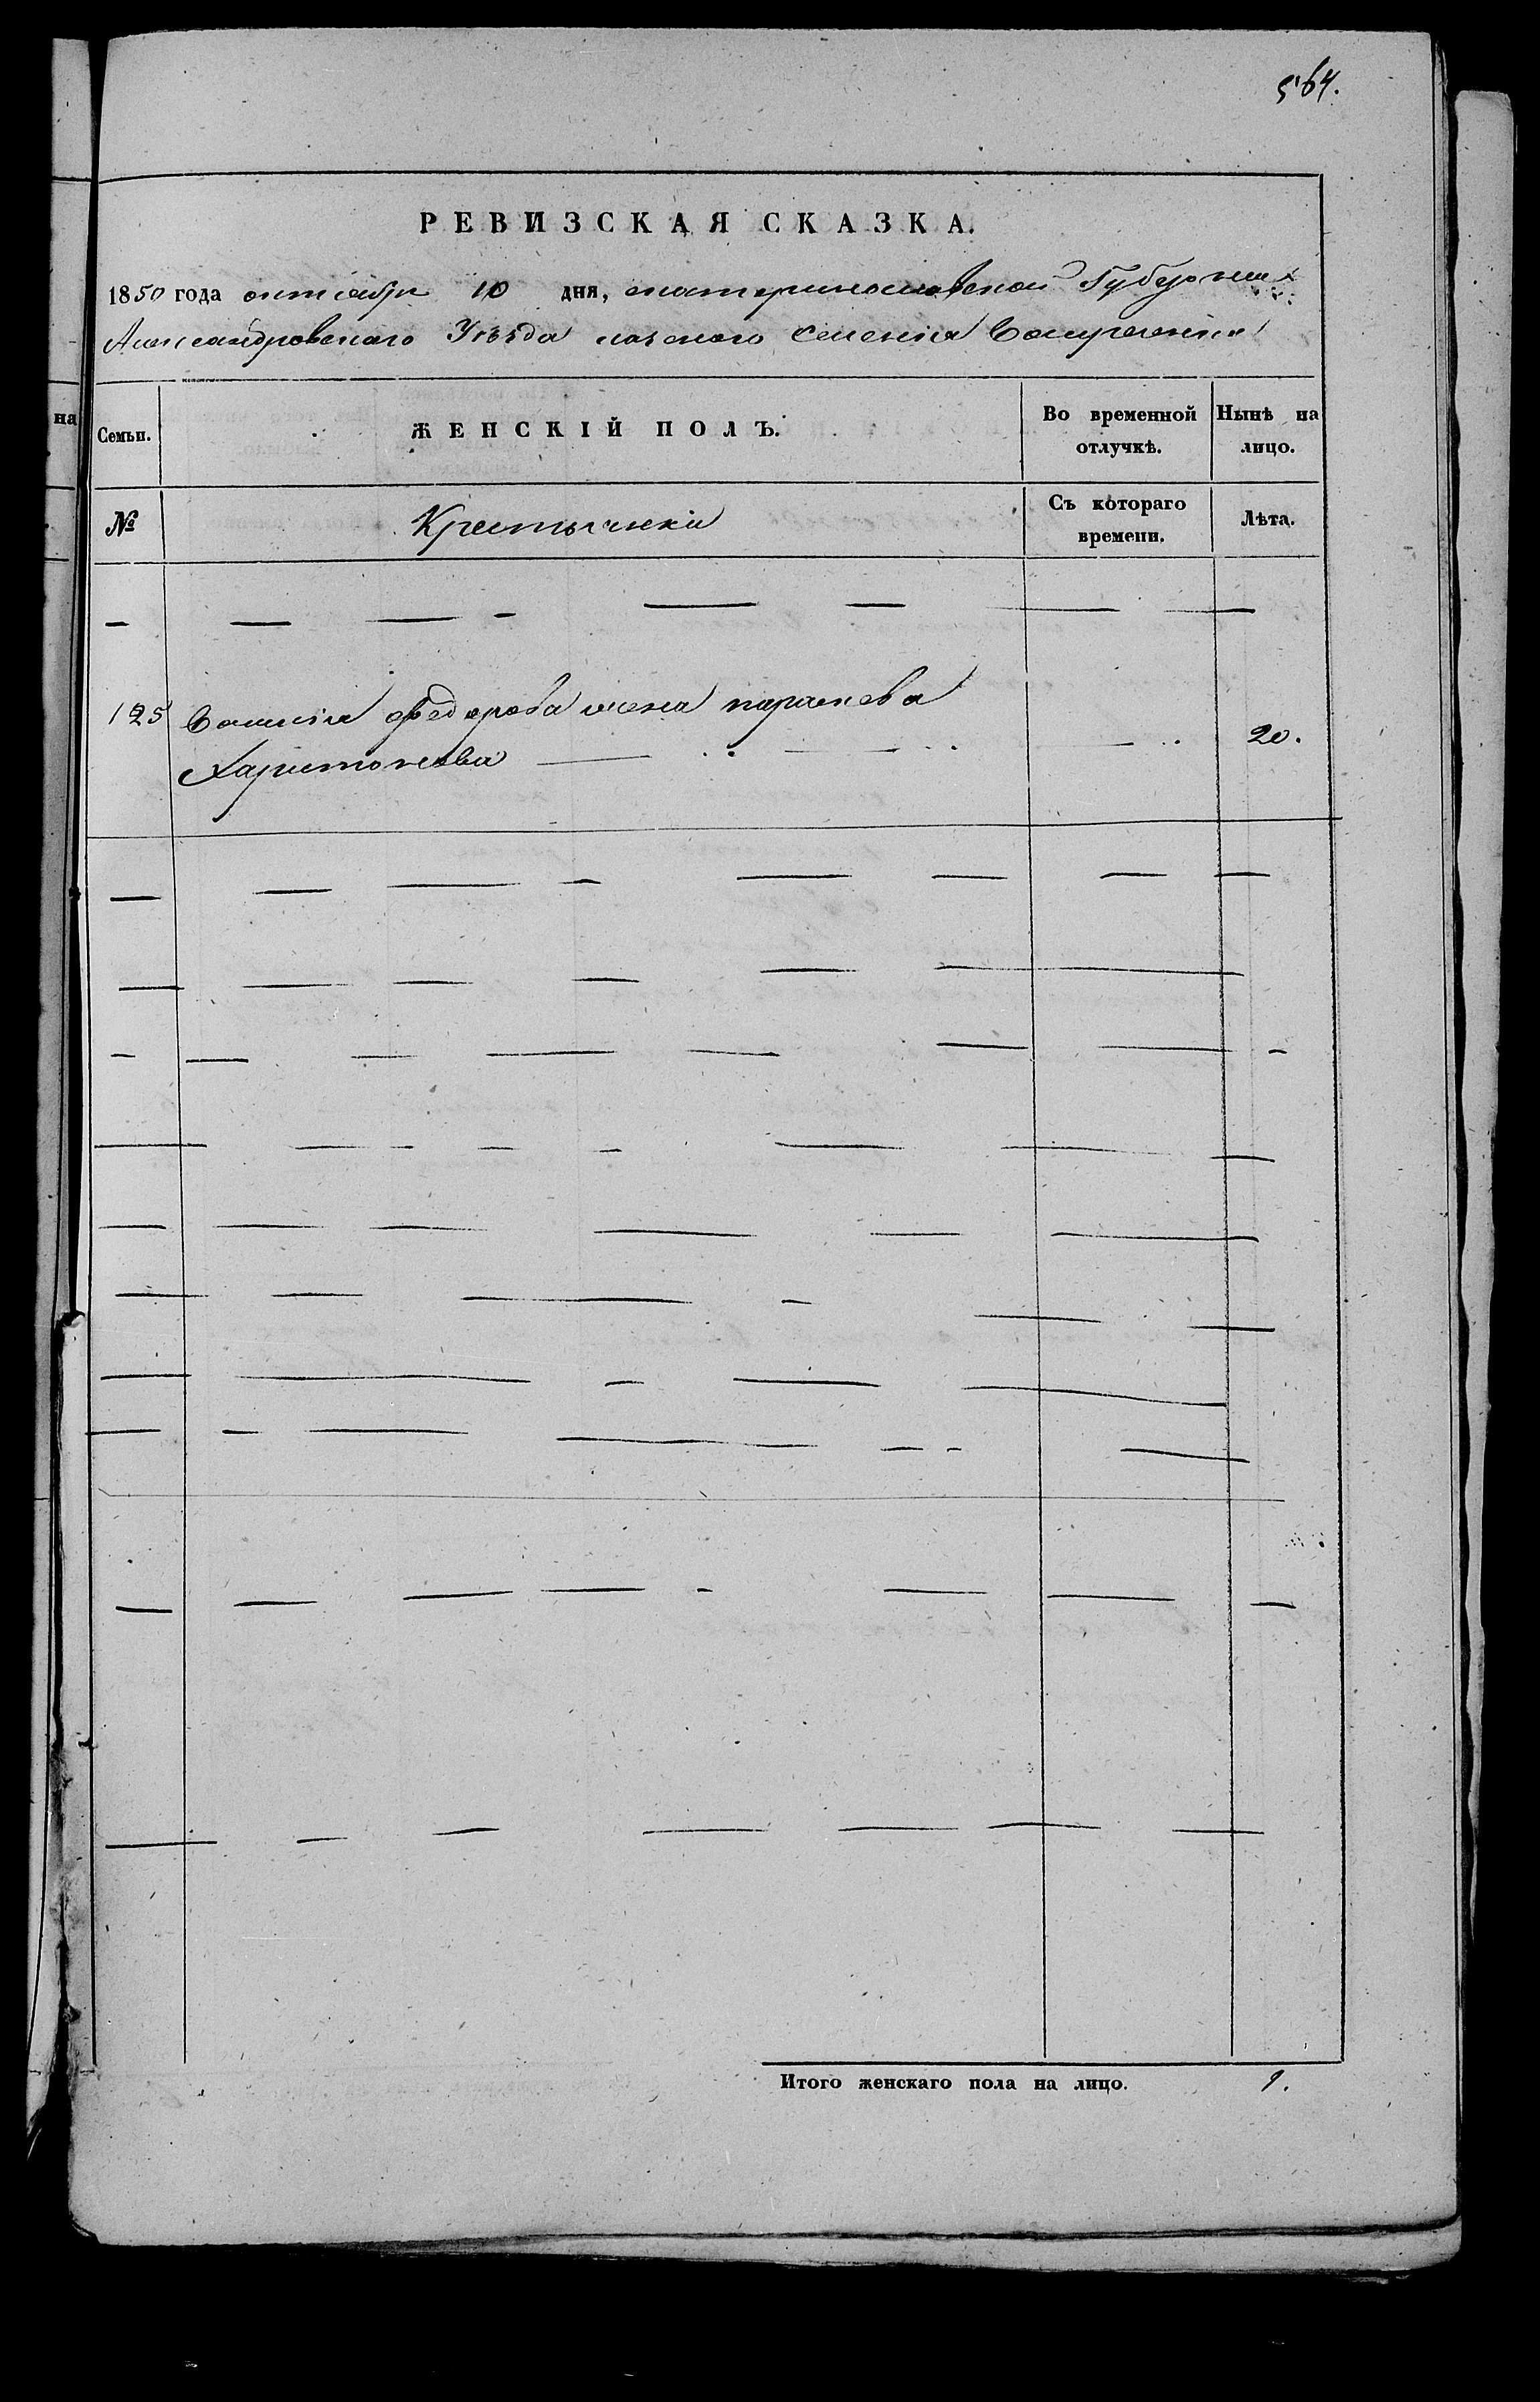 564.
РЕВИЗСКАЯ СКАЗКА.
1850 года октября 10 дня, екатеринославской Губернии
Александровскаго Уезда казеннаго селения
на
Семьи.
ЖЕНСКІЙ ПОЛЪ.
Во временной отлучкѣ.
Нынѣ на лицо.
№
Крестьянки
Съ котораго времени.
Лѣта.
125 федорова жена параскева
Харитонова 20.
Итого женскаго пола на лицо. 1.